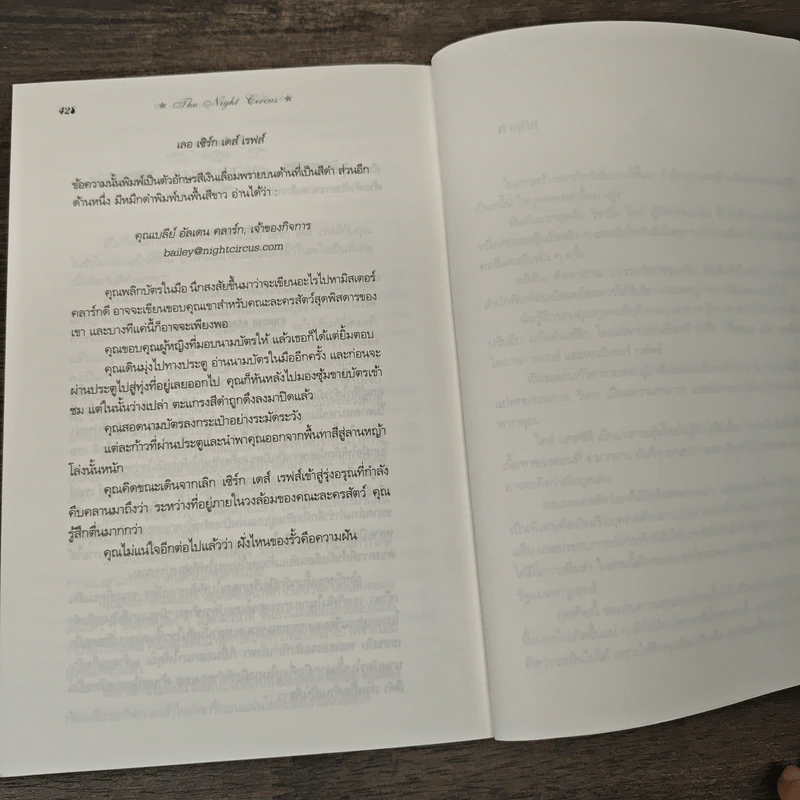 428
The Night Circus
เลอ เซิร์ก เดส์ เรฟส์
ข้อความนั้นพิมพ์เป็นตัวอักษรสีเงินเลื่อมพรายบนด้านที่เป็นสีดำ ส่วนอีก
ด้านหนึ่ง มีหมึกดำพิมพ์บนพื้นสีขาว อ่านได้ว่า :
คุณเบลีย์ อัลเดน คลาร์ก, เจ้าของกิจการ
bailey@nightcircus.com
คุณพลิกบัตรในมือ นึกสงสัยขึ้นมาว่าจะเขียนอะไรไปหามิสเตอร์
คลาร์กดี อาจจะเขียนขอบคุณเขาสำหรับคณะละครสัตว์สุดพิสดารของ
เขา และบางทีแค่นี้ก็อาจจะเพียงพอ
คุณขอบคุณผู้หญิงที่มอบนามบัตรให้ แล้วเธอก็ได้แต่ยิ้มตอบ
คุณเดินมุ่งไปทางประตู อ่านนามบัตรในมืออีกครั้ง และก่อนจะ
ผ่านประตูไปสู่ทุ่งที่อยู่เลยออกไป คุณก็หันหลังไปมองซุ้มขายบัตรเข้า
ชม แต่ในนั้นว่างเปล่า ตะแกรงสีดำถูกดึงลงมาปิดแล้ว
คุณสอดนามบัตรลงกระเป๋าอย่างระมัดระวัง
แต่ละก้าวที่ผ่านประตูและนำพาคุณออกจากพื้นทาสีสู่ลานหญ้า
โล่งนั้นหนัก
คุณคิดขณะเดินจากเลิก เซิร์ก เดส์ เรฟส์เข้าสู่รุ่งอรุณที่กำลัง
คืบคลานมาถึงว่า ระหว่างที่อยู่ภายในวงล้อมของคณะละครสัตว์ คุณ
รู้สึกตื่นมากกว่า
คุณไม่แน่ใจอีกต่อไปแล้วว่า ฝั่งไหนของรั้วคือความฝัน